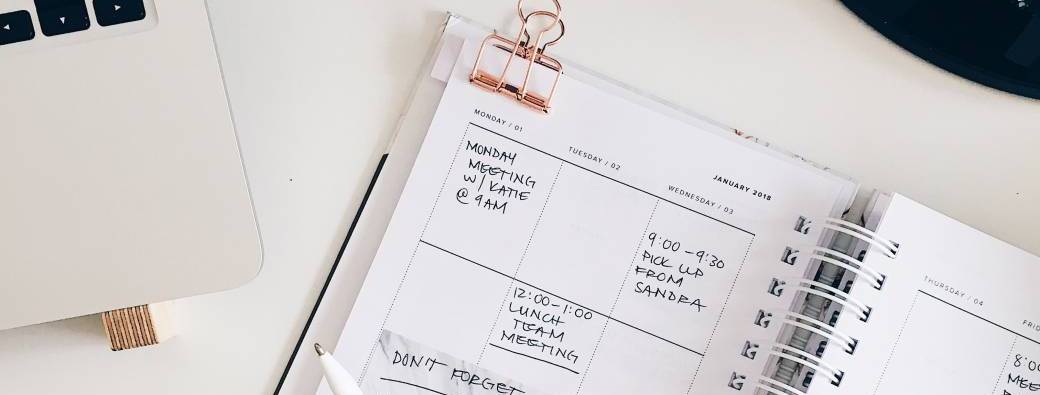 JANUARY 2018
MONDAY / 01
TUESDAY / 02
WEDNESDAY / 03
MONDAY
MEETING
W/ KATIE
@ 9AM
9:00-9:30
PICK UP
FROM
SANDRA
12:00-1:00
LUNCH
TEAM
MEETING
DON'T FORGET
THURSDAY / 04